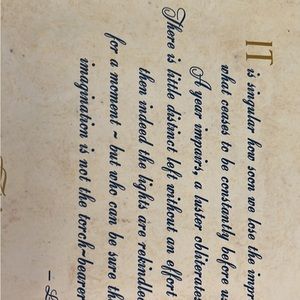 IT is singular how soon we lose the impr
what ceases to be constantly before u
A year impairs, a luster obliterates.
There is little distinct left without an effort
then indeed the lights are rekindled
for a moment ~ but who can be sure th
imagination is not the torch-bearer